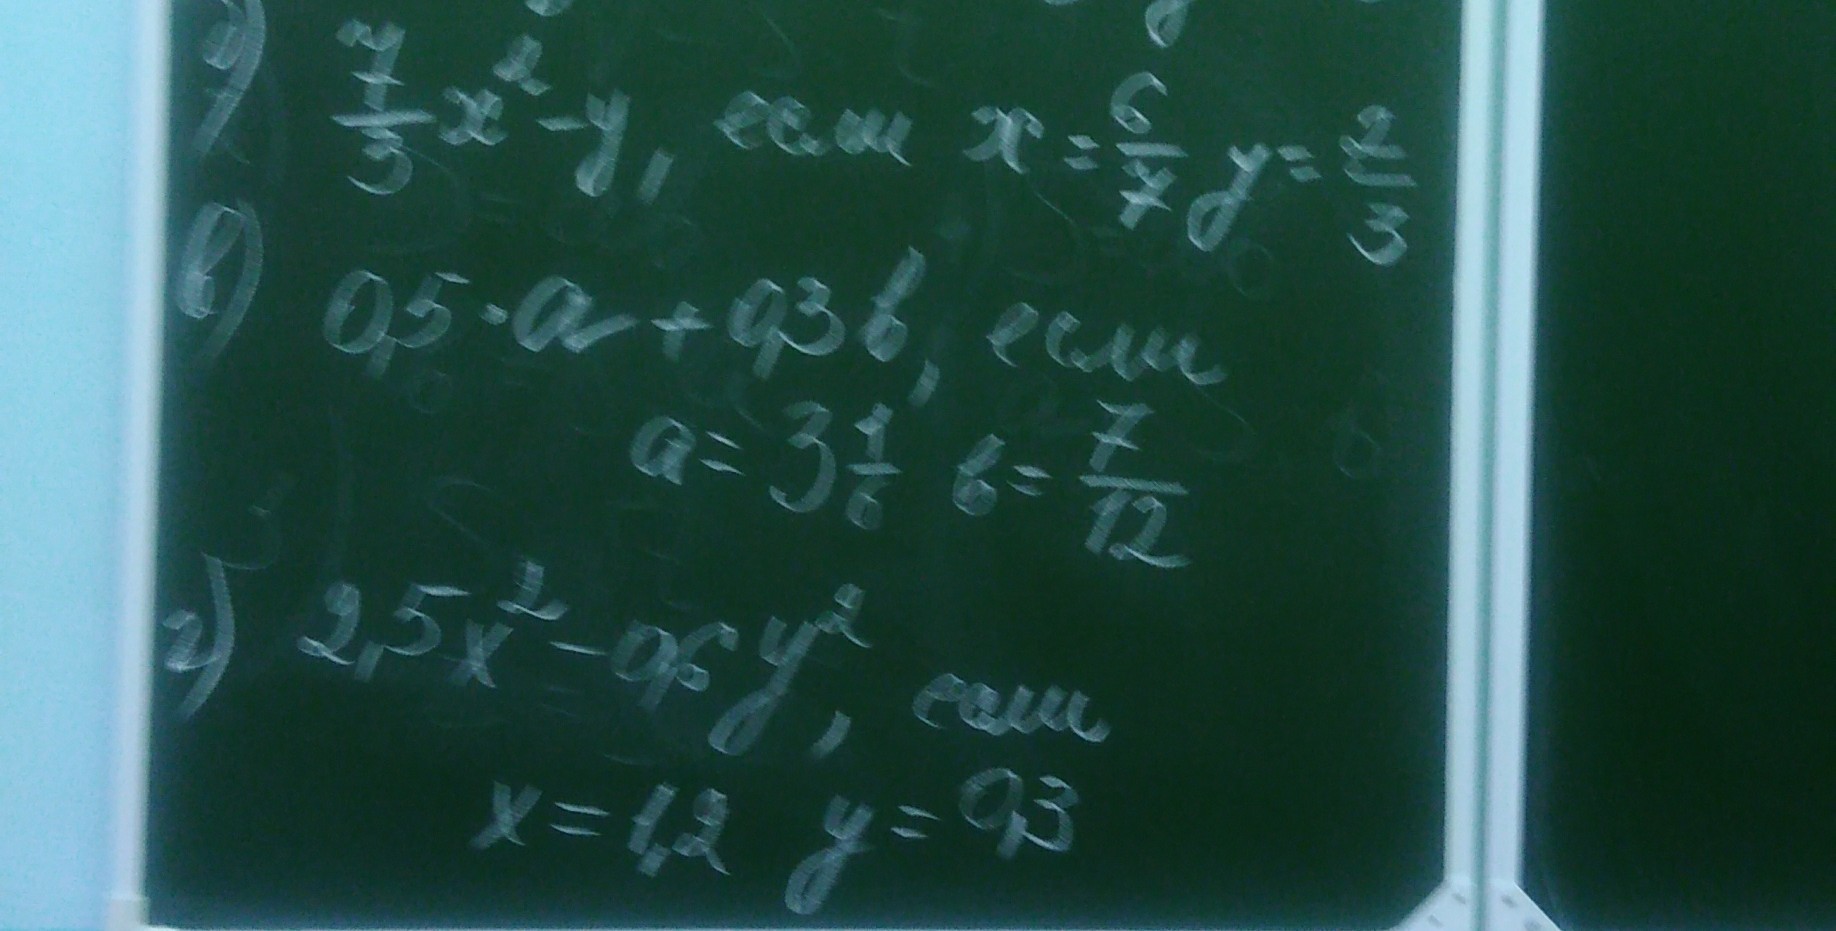 7/3 x² - y, если x = 6/7 y = 2/3
в) 0,5 · a + 0,3 в, если
a = 3 1/6 в = 7/12
г) 2,5x² - 0,6y², если
x = 1,2 y = 0,3